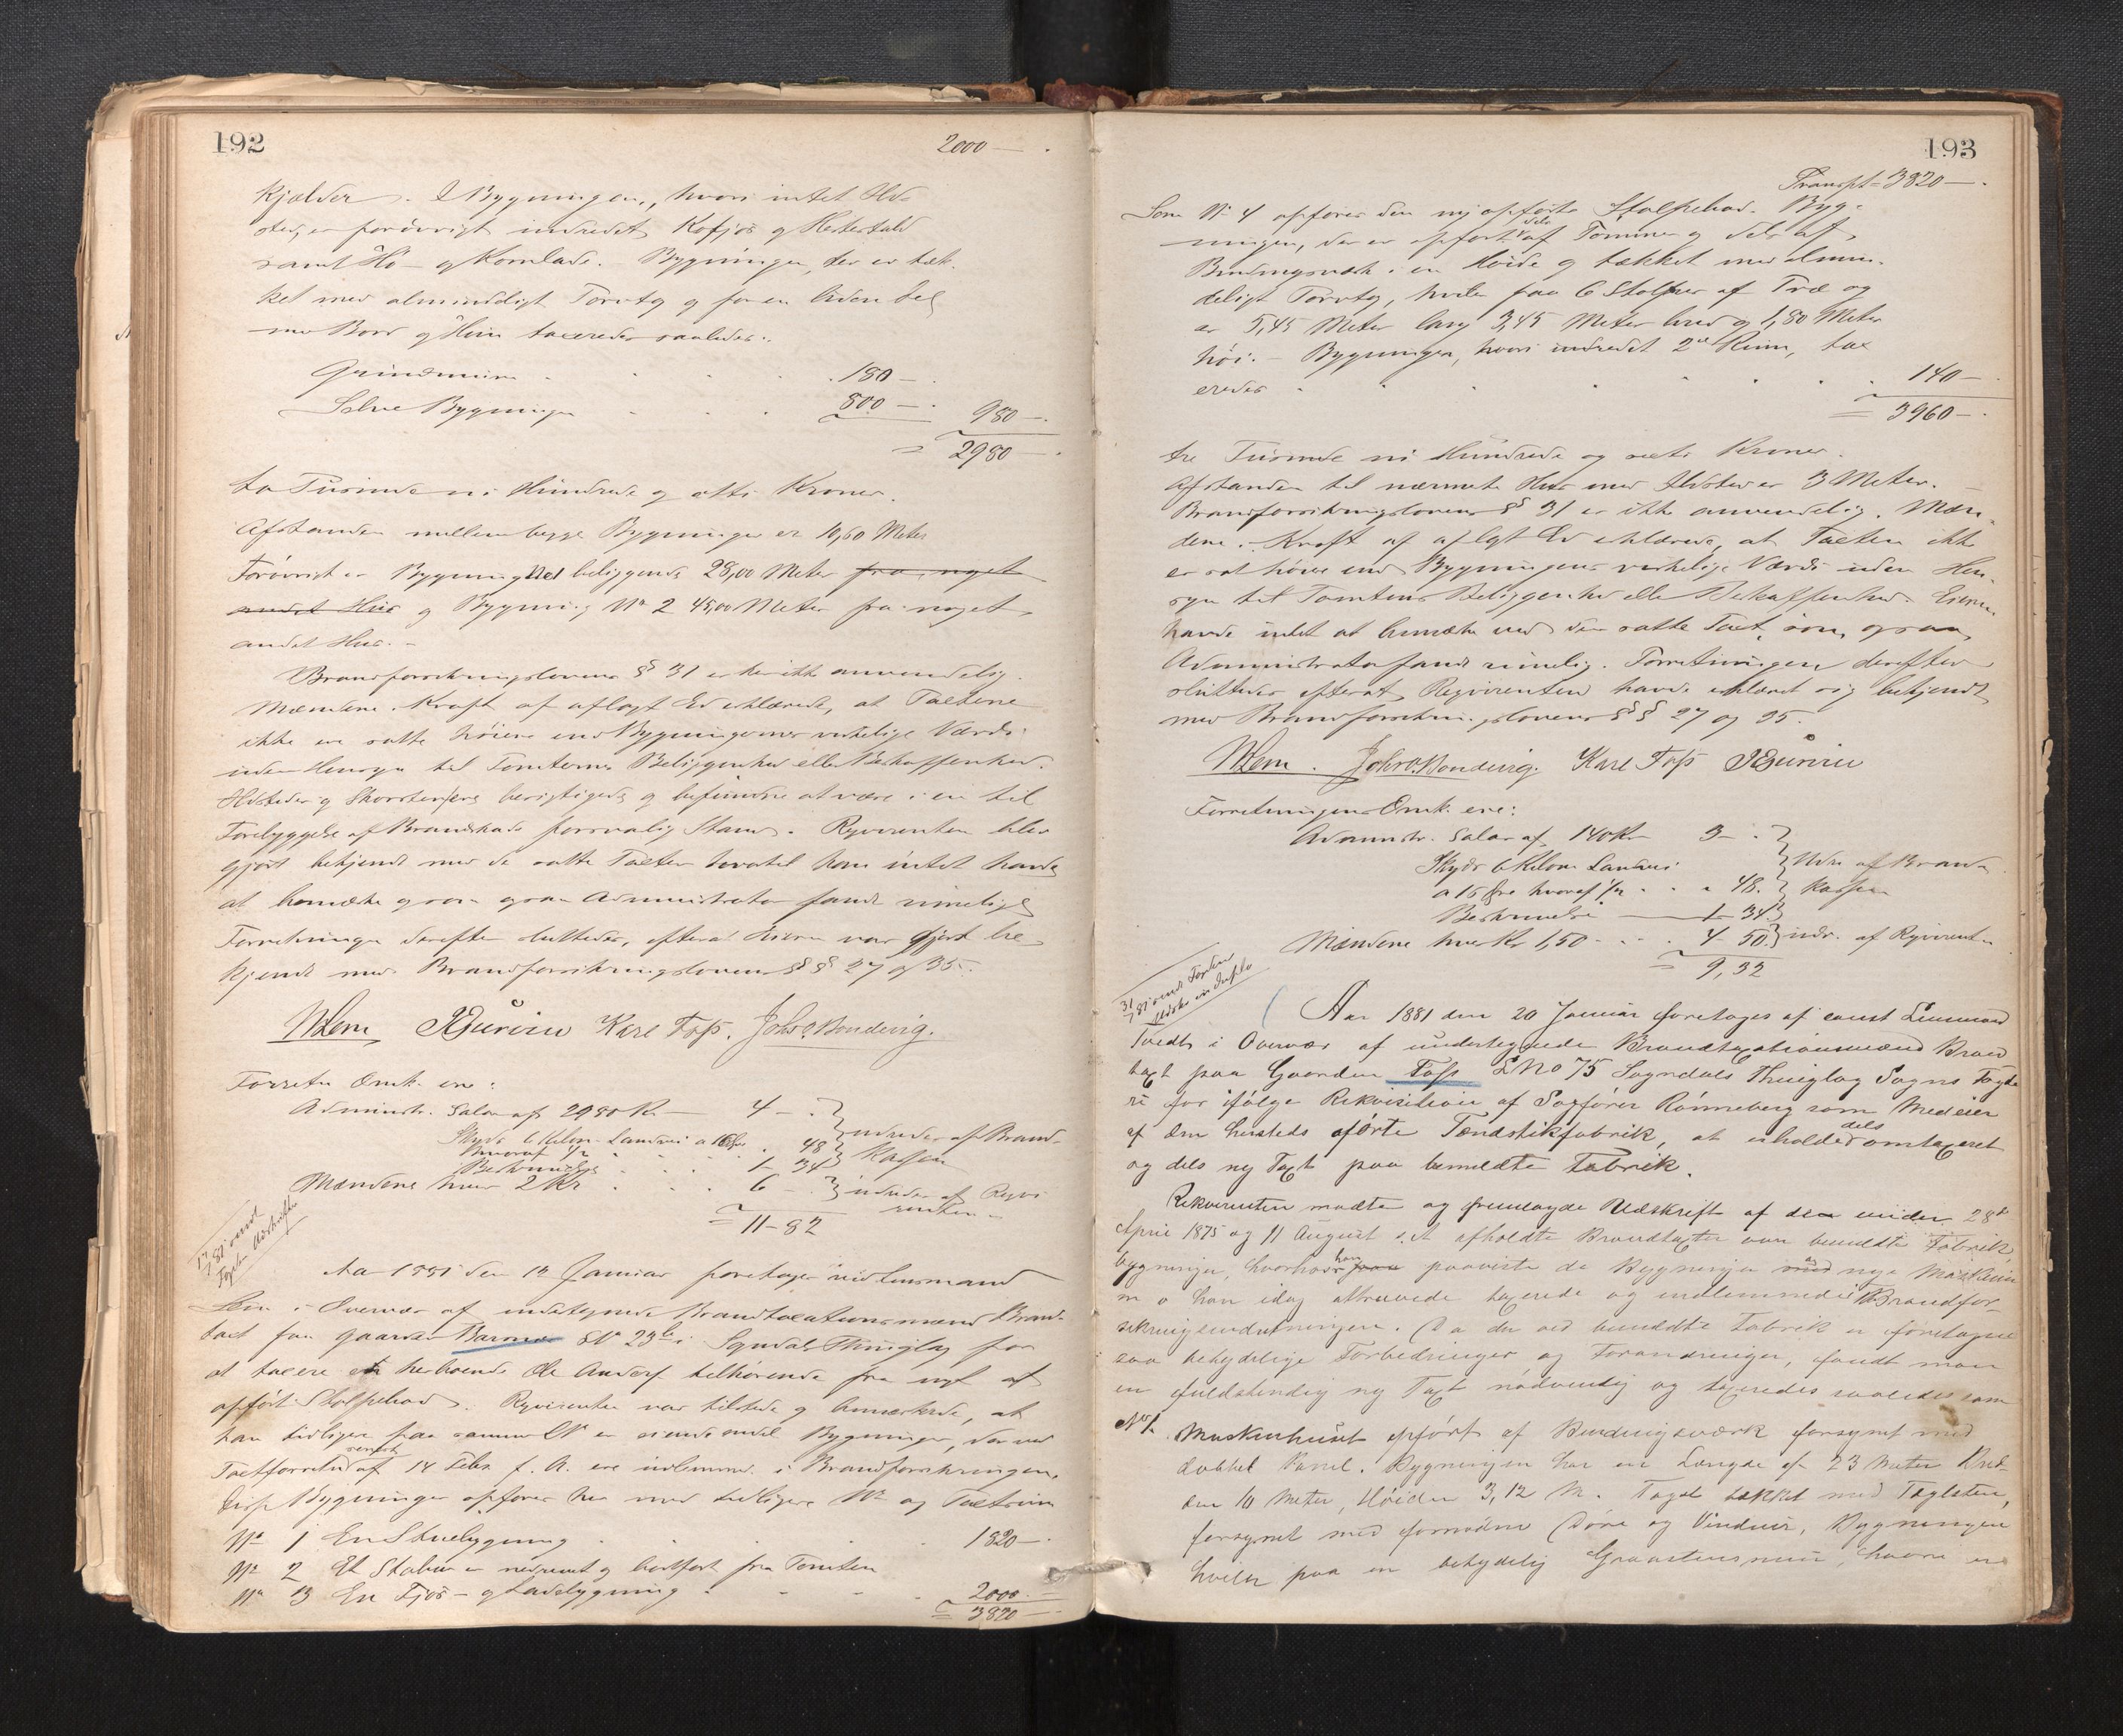 192
2000 —
Kjælder. I Bygningen, hvori intet Ild-
sted, er forøvrigt indredet Kofjøs og Hestestald
samt Hö- og Kornlade. Bygningen, der er tæk-
ket med almindeligt Torvtag og for en liden Del
med Bord og Hun taxeredes saaledes:
Grindmuren 180 —
Selve Bygningen 800 — 980 —
= 2980 —
to Tusinde ni Hundrede og otti Kroner.
Afstanden mellem begge Bygninger er 10,60 Meter
Forövrigt er Bygning No 1 beliggende 28,00 Meter fra noget
andet Hus og Bygning No 2 45,00 Meter fra noget
andet Hus. -
Brandforsikringslovens § 31 er her ikke anvendelig.
Mændene i Kraft af aflagt Ed erklærede, at Taxterne
ikke ere satte höiere end Bygningernes virkelige Værdi
uden Hensyn til Tomternes Beliggenhed eller Beskaffenhed.
Ildsteder og Skorstenene besigtigedes og befundne at være i en til
Forebyggelse af Brandskade forsvarlig Stand. Reqvirenten blev
gjort bekjendt med de satte Taxter hvortil han intet havde
at bemærke og som ogsaa Administrator fandt rimelige
Forretningen derefter sluttedes, efterat Eieren var gjort be-
kjendt med Brandforsikringslovens §§ 27 og 35.
Karl Foss. Joh. O. Bondevig.
Forretn. Omk. ere:
Administr. Salar af 2980 Kr — 4 —
Skyds 6 Kilom. Landvei a 16 Øre
hvoraf 1/2 48 } udredes af Brand-
1 — 34 } Kassen
Mændene hver 2 Kr 6 — } udredes af Reqvi-
renten —
= 11 — 82
Aar 1881 den 12 Januar foretoges ved Lensmand
Lem i Overvær af undertegnede Brandtaxationsmænd Brand-
taxt paa Gaarden Barsnes LNo 23 b i Sogndals Thinglag for
at taxere en herboende Ole Anders tilhørende fra nyt af
opført Stolpebod. Reqvirenten var tilstede og bemærkede, at
han tidligere paa samme LNo er eiende endel Bygninger, der ved
Taxtforretn. af 14 Febr. f. A. ere indlemm. i Brandforsikringen.
senest
Disse Bygninger opføres her med tidligere No og Taxtsum
No 1 En Stuebygning 1820 —
No 2 Et Stabur er nedrevet og bortført fra Tomten
No 3 En Fjøs- og Ladebygning 2000 —
= 3820 —
193
Transpt = 3820 —
Som No 4 opføres den nyopførte Stolpebod. Byg-
ningen, der er opført dels af Tømmer og dels af
Bindingsværk i en Høide og tækket med almin-
deligt Torvtag, hviler paa 6 Stolper af Træ og
er 5,45 Meter lang 3,45 Meter bred og 1,80 Meter
höi. - Bygningen, hvori indredet 2de Rum, tax-
eredes 140 —
= 3960 —
tre Tusinde ni Hundrede og sexti Kroner.
Afstanden til nærmeste Hus med Ildsted er 3 Meter.
Brandforsikringslovens § 31 er ikke anvendelig. Mæn-
dene i Kraft af aflagt Ed erklærede, at Taxten ikke
er sat høiere end Bygningens virkelige Værdi uden Hen-
syn til Tomtens Beliggenhed eller Beskaffenhed. Eieren
havde intet at bemærke ved den satte Taxt, som ogsaa
Administrator fandt rimelig. Forretningen derefter
sluttedes efterat Reqvirenten havde erklæret sig bekjendt
med Brandforsikringslovens §§ 27 og 35.
Joh. O. Bondevig. Karl Foss
Forretningens Omk. ere:
Administr. Salar af 140 Kr 3 —
Skyds 6 Kilom Landvei
a 16 Øre hvoraf 1/2 48 } Udr. af Brand-
1 — 34 } kassen
Mændene hver Kr 1,50 4 — 50 } udr. af Reqvirenten
= 9,32
Aar 1881 den 20 Januar foretoges af const Lensmand
Tvedt i Overvær af undertegnede Brandtaxationsmænd Brand-
taxt paa Gaarden Foss LNo 75 Sogndals Thinglag Sogns Fogde-
ri for ifølge Rekvisition af Sagfører Rönneberg som Medeier
af den hersteds opförte Tændstikfabrik, at erholde dels omtaxeret
og dels ny Taxt paa bemeldte Fabrik.
Rekvirenten mødte og fremlagde Udskrift af den under 28de
April 1875 og 11 August s. A. afholdte Brandtaxter over bemeldte Fabrik-
bygninger, hvorhos han paaviste de Bygninger og nye Maskiner
m v han idag attraaede taxerede og indlemmede i Brandfor-
sikringsindretningen. Da der ved bemeldte Fabrik er foretagne
saa betydelige Forbedringer og Forandringer, fandt man
en fuldstendig ny Taxt nödvendig og taxeredes saaledes som
No 1. Maskinhuset opfört af Bindingsværk forsynet med
dobbel Panel. Bygningen har en Længde af 23 Meter Bred-
den 10 Meter, Höiden 3,12 M. Taget tækket med Taglsten,
forsynet med fornødne Döre og Vinduer, Bygningen
hviler paa en betydelig Graastensmur, hvori er